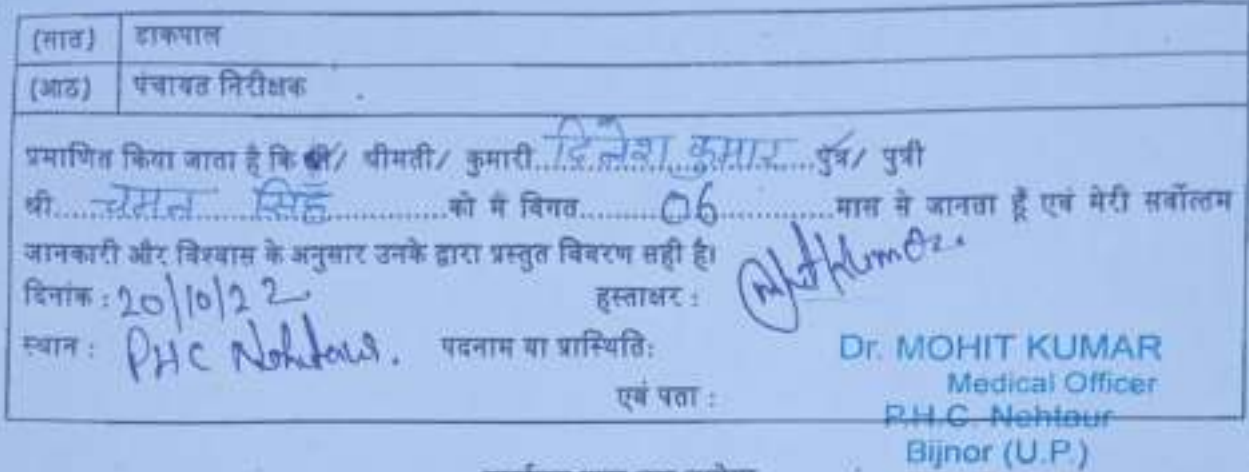 (सात) डाकपाल
(आठ) पंचायत निरीक्षक
प्रमाणित किया जाता है कि श्री/ श्रीमती/ कुमारी..दिनेश कुमार...पुत्र/ पुत्री
श्री.....चमन सिंह............को मै विगत.........06............मास से जानता हूँ एवं मेरी सर्वोत्तम
जानकारी और विश्वास के अनुसार उनके द्वारा प्रस्तुत विवरण सही है।
दिनांक : 20/10/22 हस्ताक्षर :
स्थान : PHC Nehtaur. पदनाम या प्रास्थिति: Dr. MOHIT KUMAR
Medical Officer
एवं पता :
P.H.C. Nehtaur
Bijnor (U.P.)